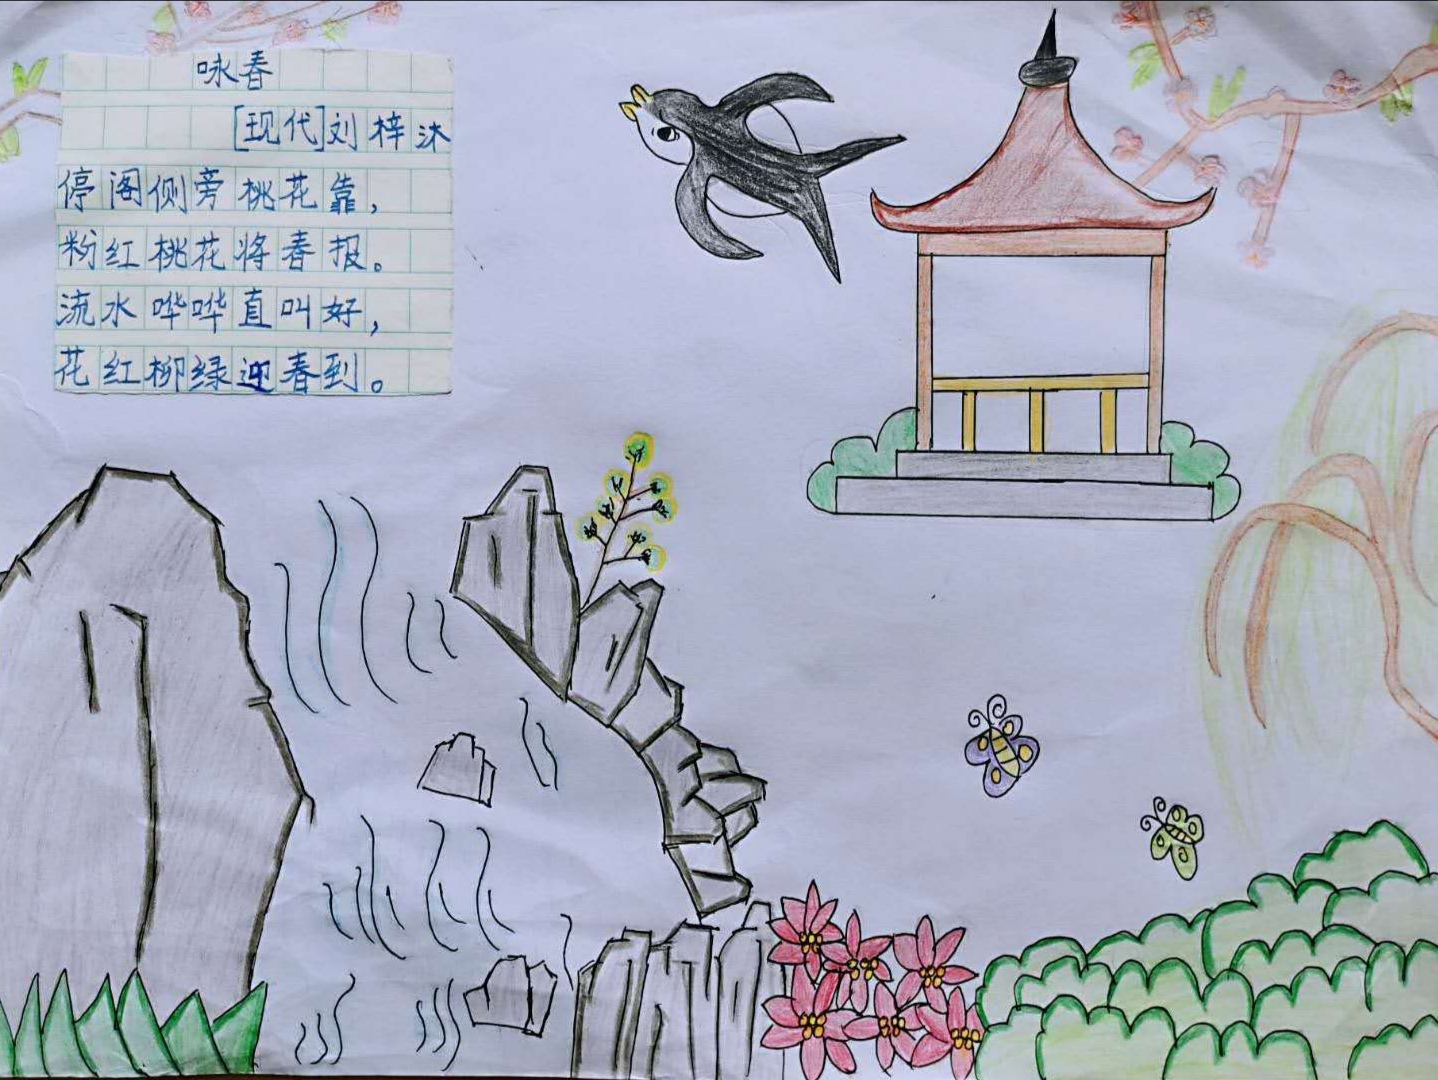 咏春
[现代]刘梓沐
停阁侧旁桃花靠，
粉红桃花将春报。
流水哗哗直叫好，
花红柳绿迎春到。